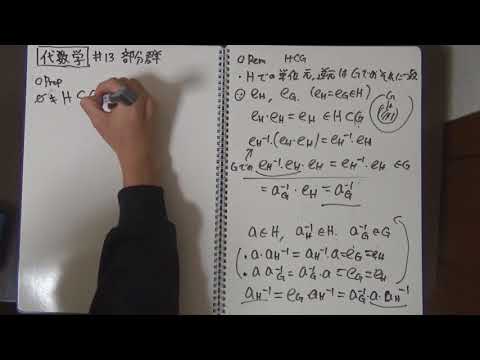 代数学 #13 部分群
○Prop
∅≠H⊂G
○Rem H⊂G
・Hでの単位元,逆元はGでのそれに一致
∵ e_H, e_G. (e_H=e_G∈H)
G
e_H・e_H = e_H ∈ H⊂G
e_H⁻¹・(e_H・e_H) = e_H⁻¹・e_H
Gでの e_H⁻¹・e_H・e_H = e_H⁻¹・e_H ∈G
= a_G⁻¹・e_H = a_G⁻¹
a∈H, a_H⁻¹∈H. a_G⁻¹∈G
・a・a_H⁻¹ = a_H⁻¹・a = e_G = e_H
・a a_G⁻¹ = a_G⁻¹・a = e_G = e_H
a_H⁻¹ = e_G・a_H⁻¹ = a_G⁻¹・a・a_H⁻¹